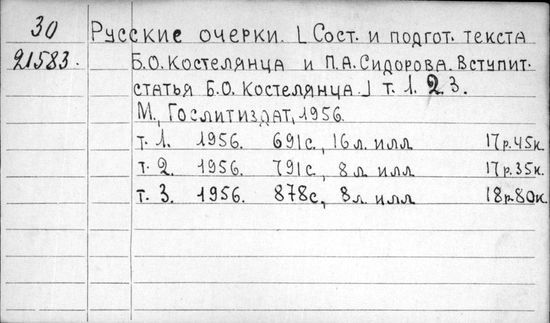 30
21583.
Русские очерки. [Сост. и подгот. текста
Б.О. Костелянца и П.А. Сидорова. Вступит.
статья Б.О. Костелянца.] т. 1. 2 3.
М., Гослитиздат, 1956.
т. 1. 1956. 691с., 16 л. илл 17р.45к.
т. 2. 1956. 791с., 8 л. илл 17р.35к.
т. 3. 1956. 878с., 8 л. илл 18р.80к